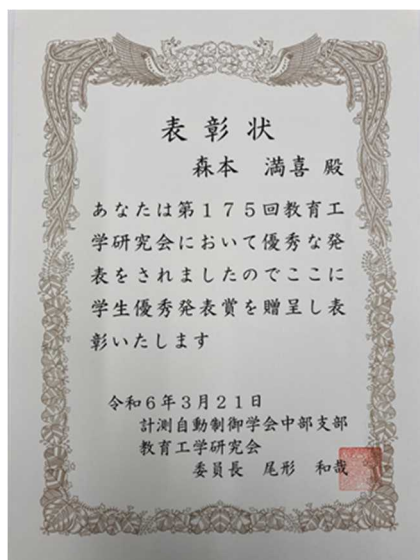 表彰状
森本 満喜 殿
あなたは第175回教育工
学研究会において優秀な発
表をされましたのでここに
学生優秀発表賞を贈呈し表
彰いたします
令和6年3月21日
計測自動制御学会中部支部
教育工学研究会
委員長 尾形 和哉